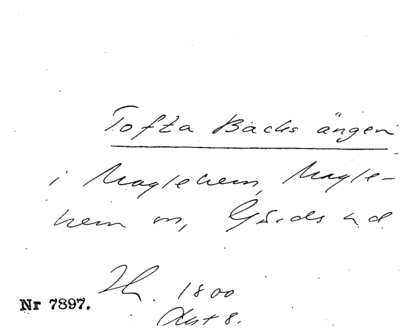 Tofta Backs ängen
i Maglehem, Magle-
hem sn, Gärds hd
Nr 7897.
1800